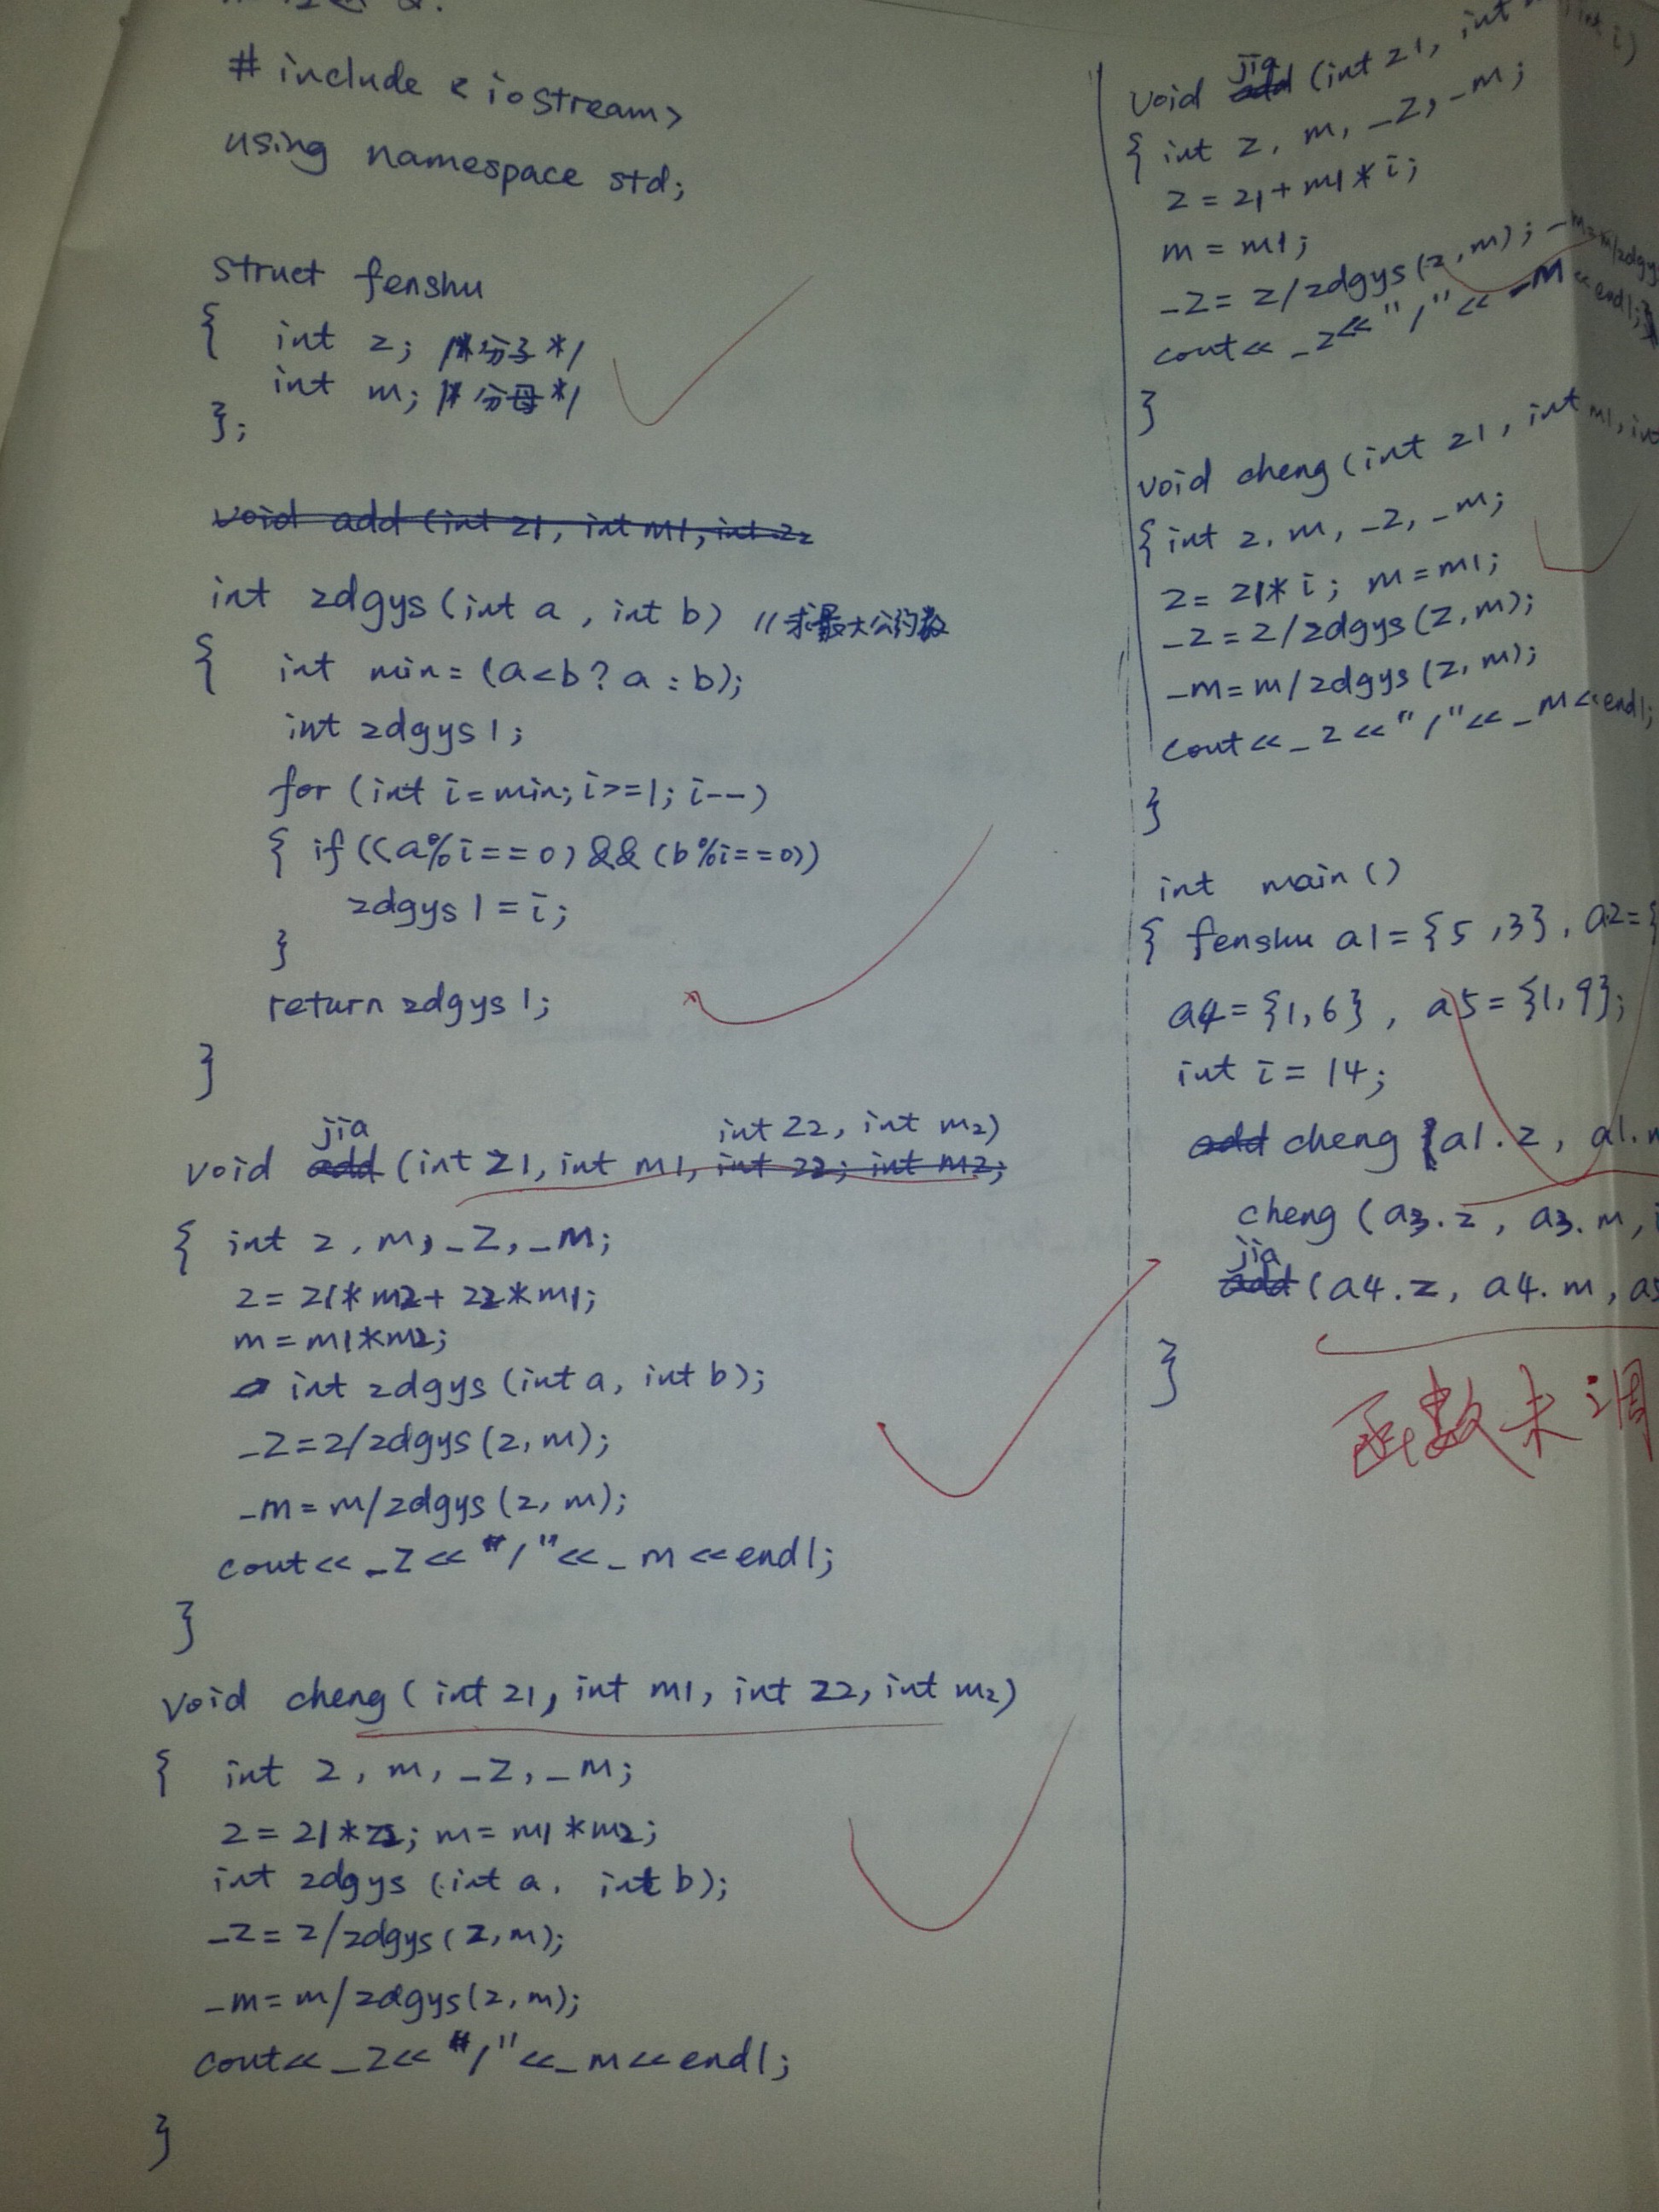 # include <iostream>
using namespace std;
struct fenshu
{ int z; /*分子*/
int m; /*分母*/
};
void add (int z1, int m1, int z2
int zdgys (int a, int b) //求最大公约数
{ int min = (a<b? a : b);
int zdgys1;
for (int i=min; i>=1; i--)
{ if ((a%i==0) && (b%i==0))
zdgys1 = i;
}
return zdgys1;
}
jia int z2, int m2)
void add (int z1, int m1, int z2; int m2;
{ int z, m, _z, _m;
z = z1*m2+ z2*m1;
m = m1*m2;
int zdgys (int a, int b);
_z=z/zdgys(z,m);
_m=m/zdgys(z,m);
cout<< _z<< "/"<<_m<<endl;
}
void cheng (int z1, int m1, int z2, int m2)
{ int z, m, _z, _m;
z = z1*z2; m= m1*m2;
int zdgys (int a, int b);
_z= z/zdgys(z,m);
_m= m/zdgys(z,m);
cout<< _z<< "/"<<_m<<endl;
}
jia
void add (int z1, int i)
{ int z, m, _z, _m;
z = z1+ m1*i;
m = m1;
_z= z/zdgys(z,m); _m=m/zdgys
cout<< _z<<"/"<< _m <<endl;
}
void cheng (int z1, int m1, int
{int z, m, _z, _m;
z= z1* i; m=m1;
_z=z/zdgys(z,m);
_m=m/zdgys(z,m);
cout<< _z<<"/"<<_m<<endl;
}
int main ()
{ fenshu a1={5,3}, a2={
a4={1,6}, a5={1,9};
int i= 14;
add cheng (a1.z, a1.m
cheng (a3.z, a3.m,
jia
add (a4.z, a4.m, a5
}
函数未调